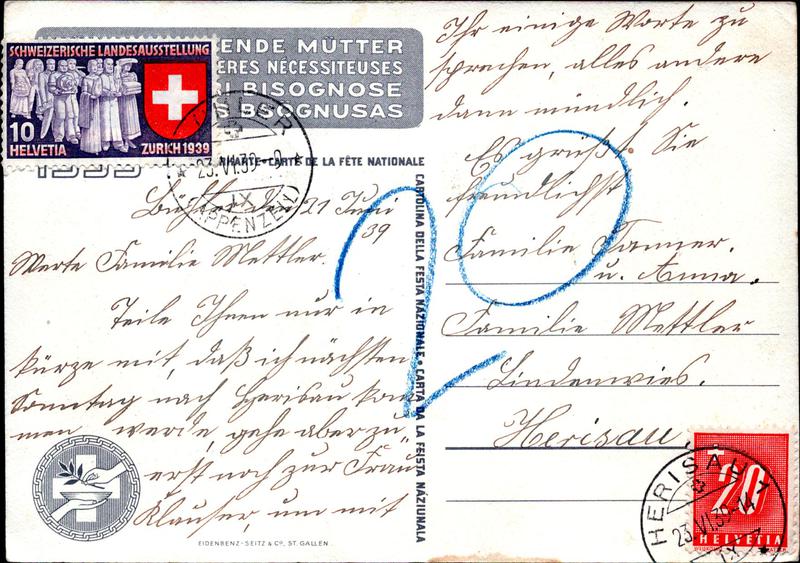 SCHWEIZERISCHE LANDESAUSSTELLUNG
10
HELVETIA ZURICH 1939
ENDE MÜTTER
ÈRES NÉCESSITEUSES
RI BISOGNOSE
BISOGNUSAS
HKARTE-CARTE DE LA FÊTE NATIONALE
BÜHLER
23.VI.39.-9
IX
(APPENZELL)
Bühler den 21 Juni
39
Werte Familie Mettler.
Teile Ihnen nur in
kürze mit, daß ich nächsten
Sonntag nach Herisau kom
men werde, gehe aber zu
erst noch zur Frau
Klauser, um mit
EIDENBENZ-SEITZ & Cº, ST. GALLEN
CARTOLINA DELLA FESTA NAZIONALE • CARTA DA LA FEISTA NAZIUNALA
Ihr einige Worte zu
sprechen, alles andere
dann mündlich.
Es grüßt Sie
freundlichst
Familie Tanner.
u. Anna.
Familie Mettler
Lindenwies.
Herisau.
HERISAU 1
23.VI.39-14
IX
20
HELVETIA